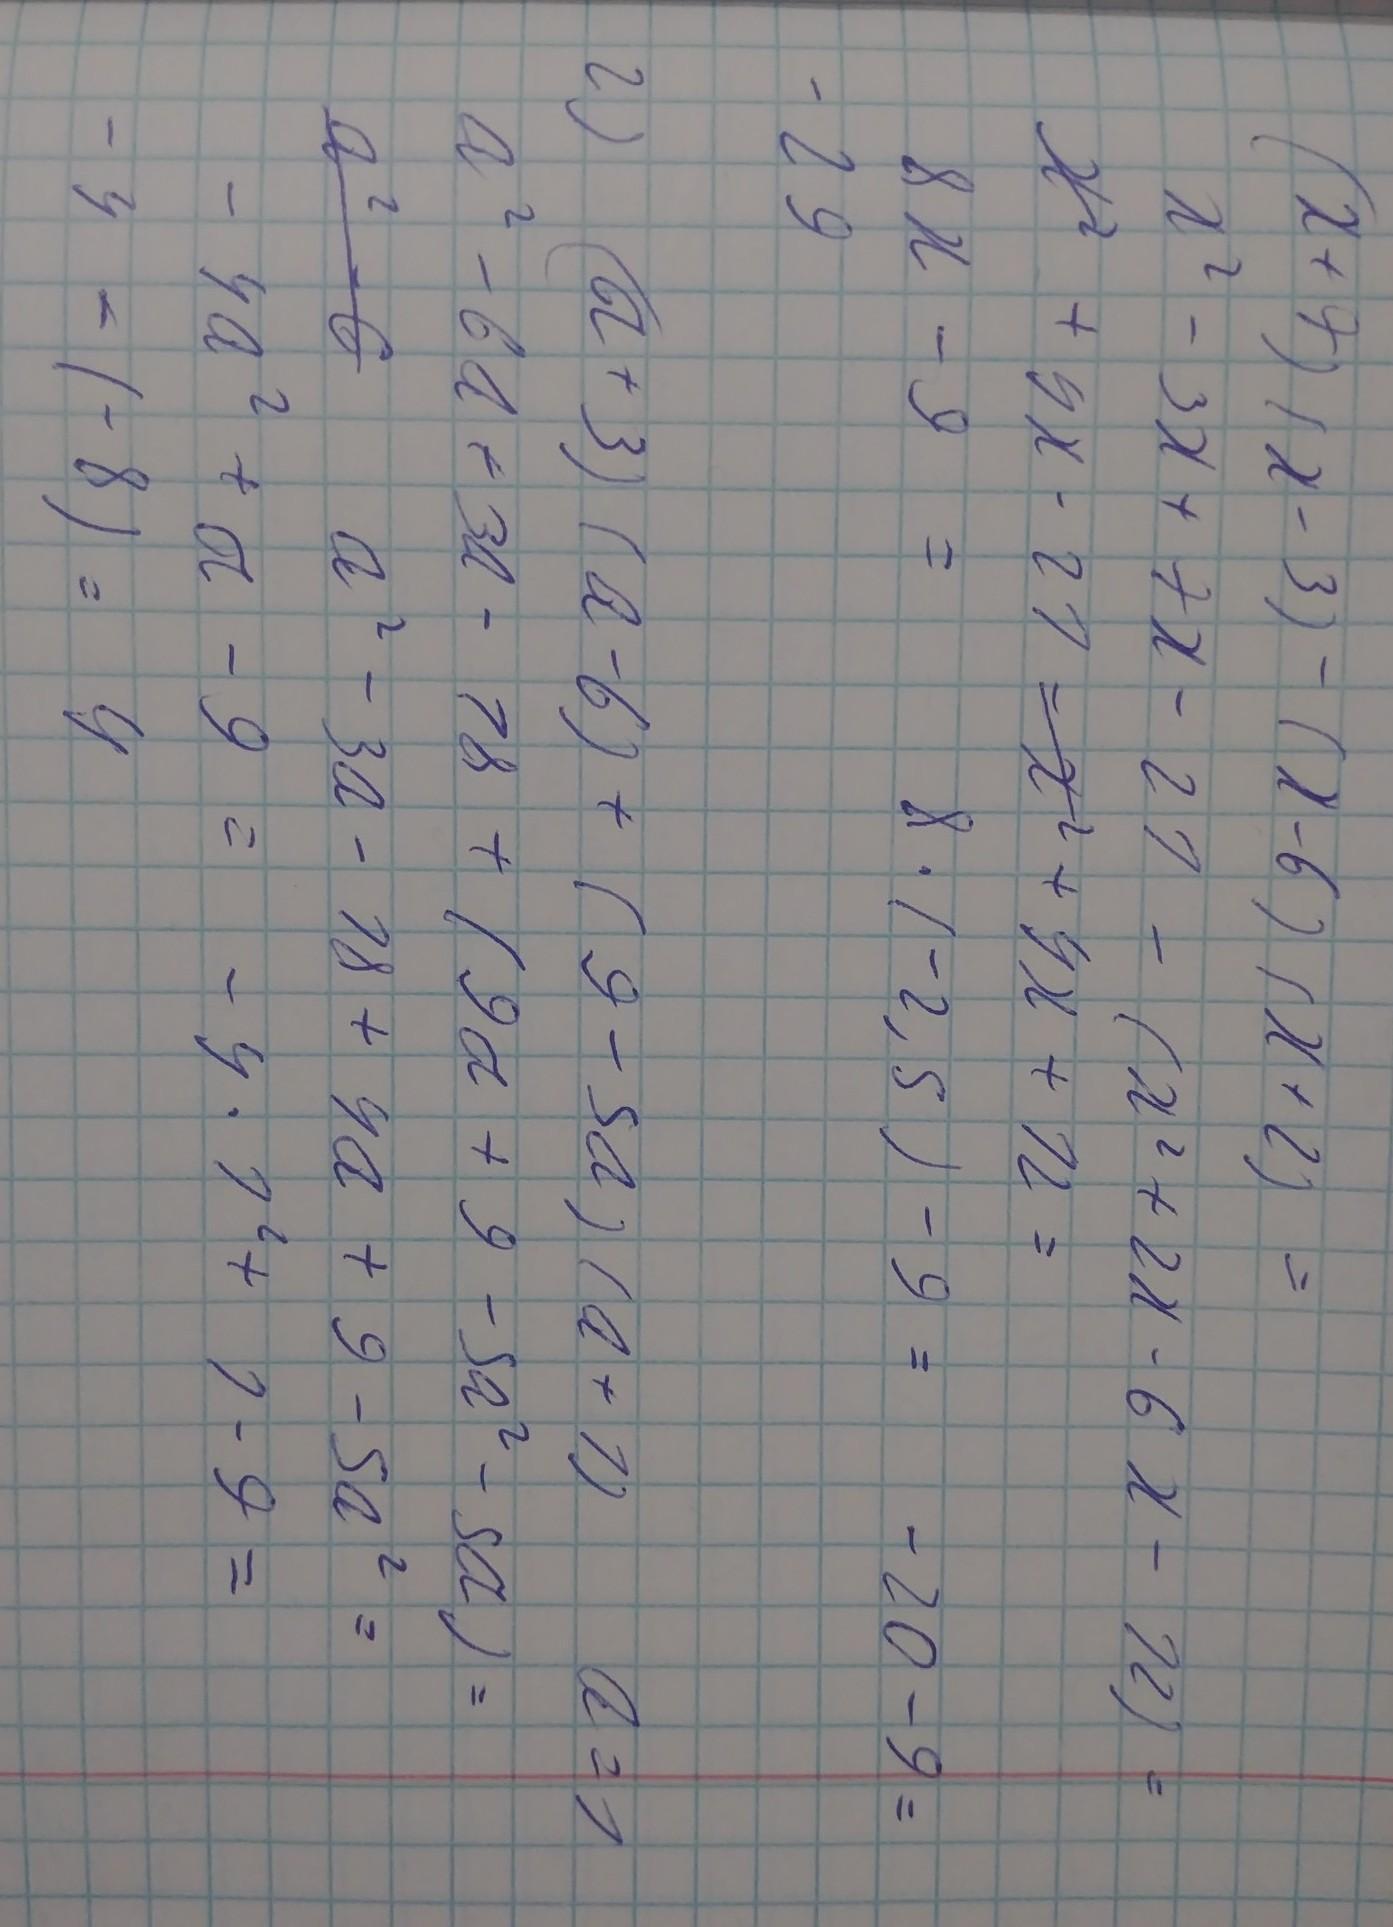 (x+7)(x-3)-(x-6)(x+2) =
x² - 3x + 7x - 21 - (x² + 2x - 6x - 12) =
x² + 4x - 21 = x² + 4x + 12 =
8x - 9 = 8 · (-2,5) - 9 = -20 - 9 =
- 29
2) (a+3)(a-6) + (9-5a)(a+1) a=1
a² - 6a + 3a - 18 + (9a + 9 - 5a² - 5a) =
a² - 6 a² - 3a - 18 + 4a + 9 - 5a² =
- 4a² + a - 9 = - 4 · 1² + 1 - 9 =
- 4 - (-8) = 4